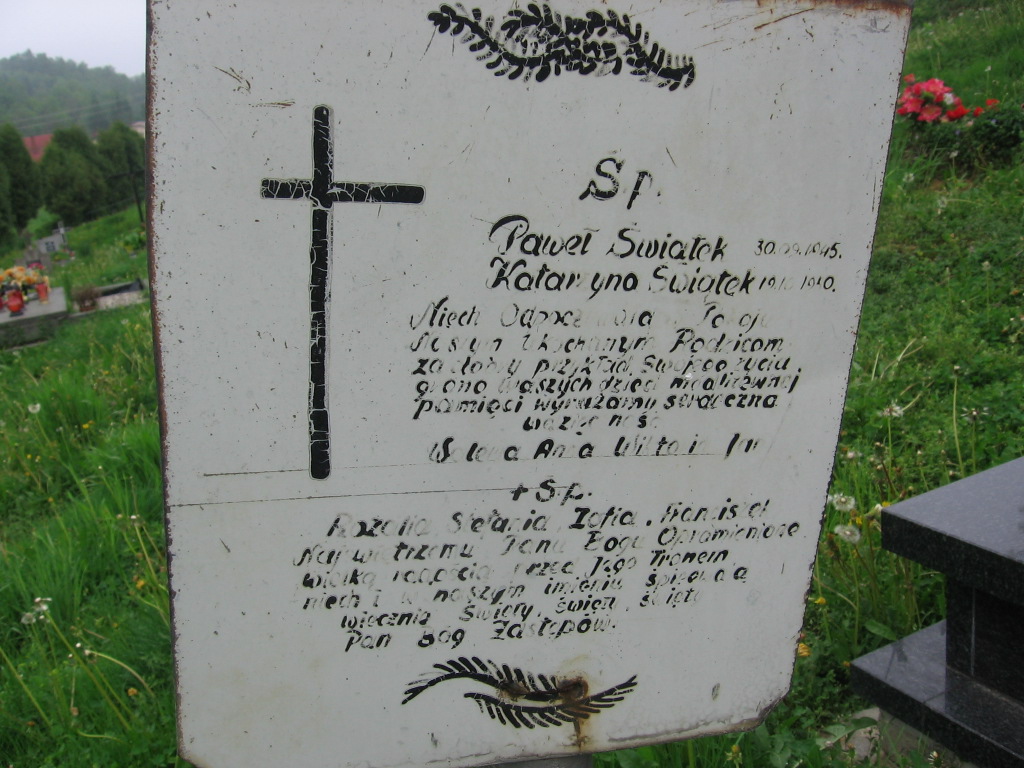 Ś.p.
Paweł Świątek 30.09.1945.
Katarzyna Świątek
Niech Odpoczywają Pokoju
Naszym Ukochanym Rodzicom
za dobry przykład Swojego życiu,
grono Waszych dzieci modlitewnej
pamięci wyrażamy serdeczną
wdzięczność
Waleria Anna Wiktoria Jan
+ Ś.p.
Rozalia Stefania Zofia, Franciszek
Najświętrzemu Panu Bogu Opromienione
wielką radością przed Jego Tronem
niech i w naszym imieniu śpiewają
wiecznie Święty, święty, święty
Pan Bóg Zastępów.